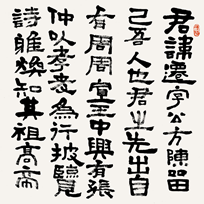 君諱遷字公方陳留
己吾人也君之先出自
有周周宣王中興有張
仲以孝友為行披覽
詩雅煥知其祖高帝